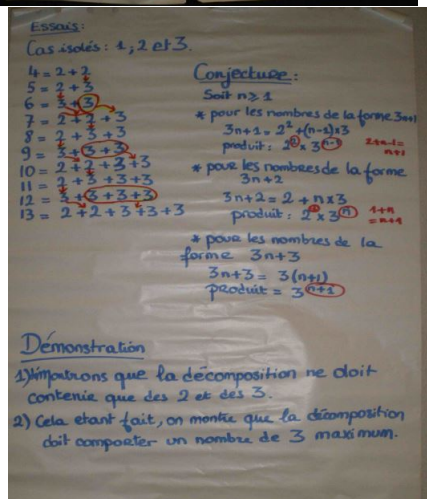 Essais:
Cas isolés: 1; 2 et 3.
4 = 2 + 2
5 = 2 + 3
6 = 3 + 3
7 = 2 + 2 + 3
8 = 2 + 3 + 3
9 = 3 + 3 + 3
10 = 2 + 2 + 3 + 3
11 = 2 + 3 + 3 + 3
12 = 3 + 3 + 3 + 3
13 = 2 + 2 + 3 + 3 + 3
Conjecture:
Soit n ≥ 1
* pour les nombres de la forme 3n+1
3n+1 = 2² + (n-1)×3
produit: 2² × 3ⁿ⁻¹
2+n-1=
n+1
* pour les nombres de la forme
3n+2
3n+2 = 2 + n×3
produit: 2 × 3ⁿ
1+n
= n+1
* pour les nombres de la
forme 3n+3
3n+3 = 3(n+1)
produit = 3ⁿ⁺¹
Démonstration
1) montrons que la décomposition ne doit
contenir que des 2 et des 3.
2) Cela étant fait, on montre que la décomposition
doit comporter un nombre de 3 maximum.